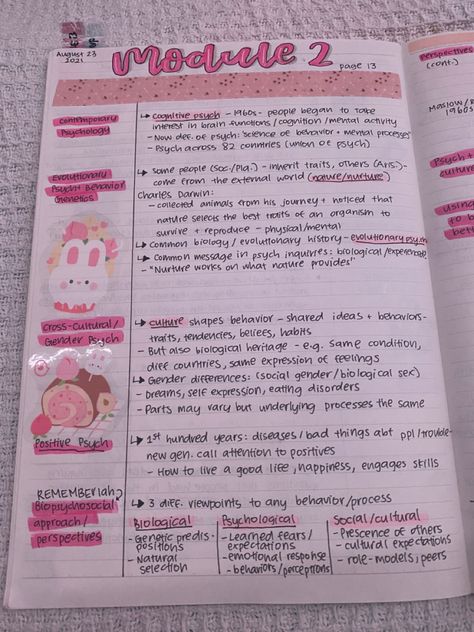 August 23
2021
Module 2
page 13
contemporary
Psychology
↳ cognitive psych – 1960s – people began to take
interest in brain functions / cognition / mental activity
- Now def. of psych: 'science of behavior + mental processes'
- Psych across 82 countries (union of psych)
Evolutionary
Psych + Behavior
Genetics
↳ some people (Soc./Pla.) – inherit traits, others (Aris.) -
come from the external world (nature/nurture)
Charles Darwin:
- collected animals from his journey + noticed that
nature selects the best traits of an organism to
survive + reproduce – physical/mental
↳ Common biology / evolutionary history – evolutionary psych
↳ Common message in psych inquires: biological/experiences
- "Nurture works on what nature provides"
Cross-Cultural/
Gender Psych
↳ culture shapes behavior – shared ideas + behaviors -
traits, tendencies, beliefs, habits
- But also biological heritage – e.g. same condition,
diff countries, same expression of feelings
↳ Gender differences: (social gender / biological sex)
- Dreams, self expression, eating disorders
- Parts may vary but underlying processes the same
Positive Psych
↳ 1st hundred years: diseases / bad things abt ppl / trouble -
new gen. call attention to positives
- How to live a good life, happiness, engages skills
REMEMBER
Biopsychosocial
approach /
perspectives
↳ 3 diff. viewpoints to any behavior/process
Biological
- Genetic predis-
positions
- Natural
selection
Psychological
- Learned fears/
expectations
- emotional response
- behaviors / perceptions
Social / cultural
- Presence of others
- cultural expectations
- role-models, peers
Perspectives
(cont.)
1960s
Psych +
using